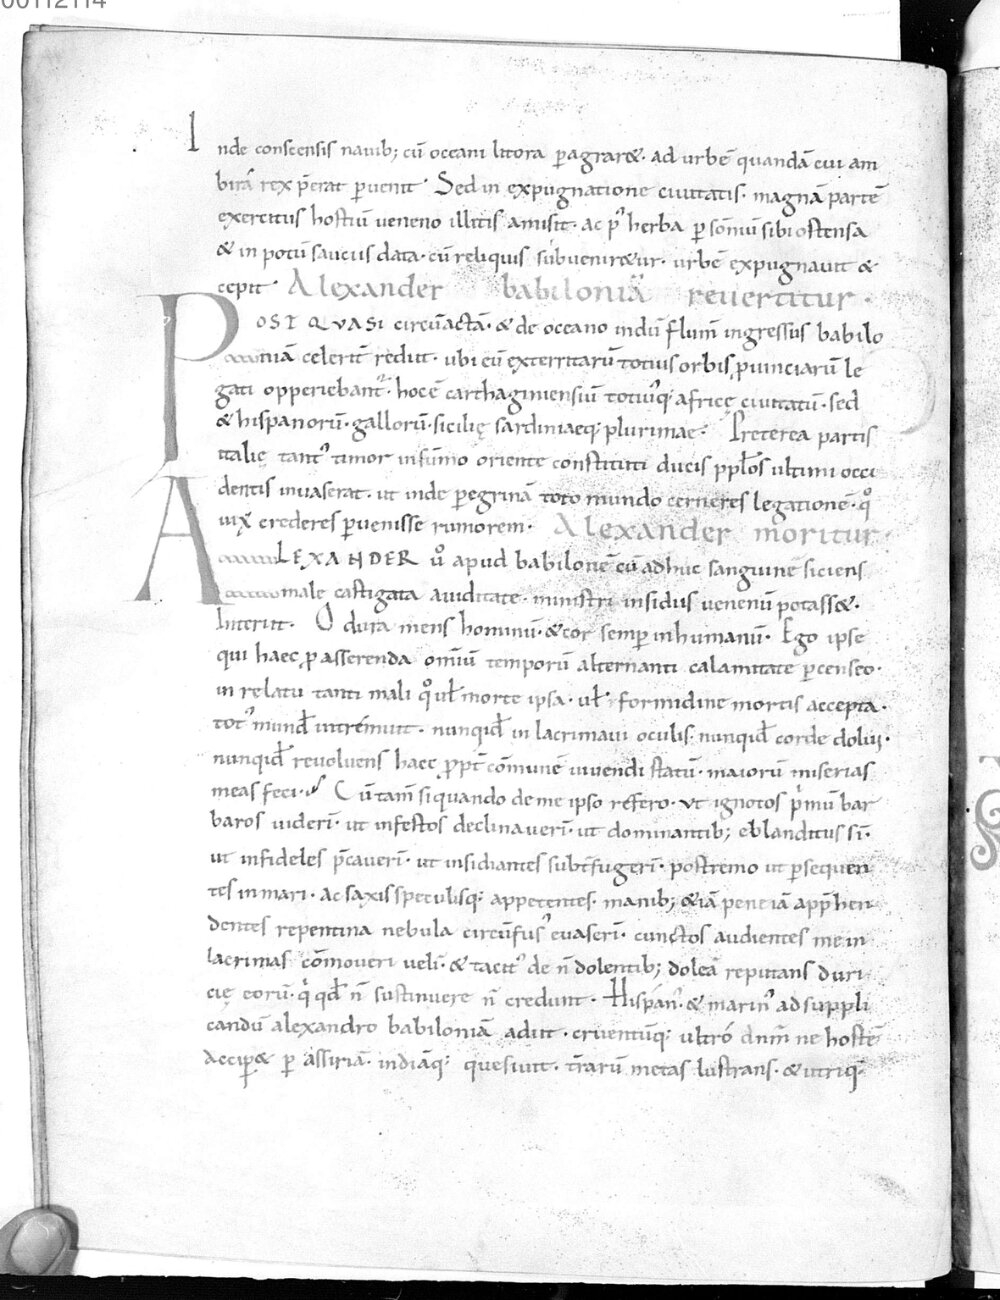 00112114
Inde conscensis nauib; cũ oceani litora ꝑagrar&. ad urbẽ quandã cui am
birã rex p̃erat ꝑuenit. Sed in expugnatione ciuitatis. magnã partẽ
exercitus hostiũ ueneno illitis amisit. ac p᷒ herba ꝑ sõmũ sibi ostensa
& in potũ sauciis data. cũ reliquis subuenir&ur. urbẽ expugnauit &
cepit. Alexander babiloniã reuertitur.
POST QVASI circũactã. & de oceano indũ flum̃ ingressus babilo
niã celerit̃ rediit. ubi eũ exterritarũ totius orbis ꝓuinciarũ le
gati opperiebant᷒. hoc ẽ carthaginiensiũ totiusq; africę ciuitatũ. sed
& hispanorũ. gallorũ. sicilię sardiniaeq; plurimae. Preterea partis
italię. tant᷒ timor in sũmo oriente constituti ducis ppl̃os ultimi occi
dentis inuaserat. ut inde ꝑegrinã toto mundo cerneres legationẽ. q᷒
uix crederes ꝑuenisse rumorem. Alexander moritur.
ALEXANDER u᷒ apud babilonẽ cũ adhuc sanguinẽ siciens
male castigata auiditate. ministri insidiis uenenũ potass&.
Interiit. O dura mens hominũ. & cor semꝑ inhumanũ. Ego ipse
qui haec ꝓ asserenda om̃iũ temporũ alternanti calamitate ꝑcenseo.
in relatu tanti mali q᷒ ul̃ morte ipsa. ul̃ formidine mortis accepta.
tot᷒ mund᷒ intremuit. nunqid̃ in lacrimaui oculis. nunqid̃ corde dolui.
nunqid̃ reuoluens haec ꝓpt̃ cõmunẽ uiuendi statũ. maiorũ miserias
meas feci. Cũ tam̃ si quando de me ipso refero. ut ignotos p̃mũ bar
baros uiderĩ. ut infestos declinauerĩ. ut dominantib; eblanditus sĩ.
ut infideles p̃cauerĩ. ut insidiantes subt̃fugerĩ. postremo ut ꝑsequen
tes in mari. ac saxis spiculisq; appetentes. manib; & iã pene iã app̃hen
dentes repentina nebula circũfus᷒ euaserĩ. cunctos audientes me in
lacrimas cõmoueri uelĩ. & tacit᷒ de ñ dolentib; doleã reputans duri
cię eorũ. q̃ qd̃ ñ sustinuere ñ credunt. Hispan᷒. & marin᷒ ad suppli
candũ alexandro babiloniã adiit. cruentũq; ultro dnm̃ ne hostẽ
accip& ꝑ assiriã. indiãq; quesiuit. t̃rarũ metas lustrans. & utriq;